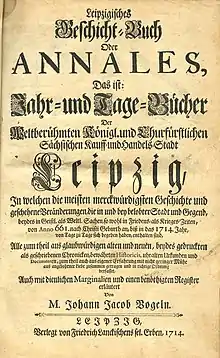 Leipzigisches
Geschicht-Buch
Oder
ANNALES,
Das ist:
Jahr- und Tage-Bücher
Der
Weltberühmten Königl. und Churfürstlichen
Sächsischen Kauff- und Handels-Stadt
Leipzig,
In welchen die meisten merckwürdigsten Geschichte und
geschehene Veränderungen, die in und bey belobter Stadt und Gegend,
beydes in Geistl. als Weltl. Sachen, so wohl in Friedens- als Krieges-Zeiten,
von Anno 661. nach Christi Geburth an, biß in das 1714. Jahr,
von Tage zu Tage sich begeben haben, enthalten sind.
Alle zum theil aus glaubwürdigen alten und neuen, beydes gedruckten
als geschriebenen Chronicken, berühmten Historicis, uhralten Uhrkunden und
Documenten, zum theil auch aus eigener Erfahrung mit nicht geringer Mühe
aus ungesparten Fleiß zusammen getragen und in richtige Ordnung
verfasset,
Auch mit dienlichen Marginalien und einen benöthigten Register
erläutert
Von
M. Johann Jacob Vogeln.
LEIPZIG,
Verlegt von Friedrich Lanckischens sel. Erben. 1714.